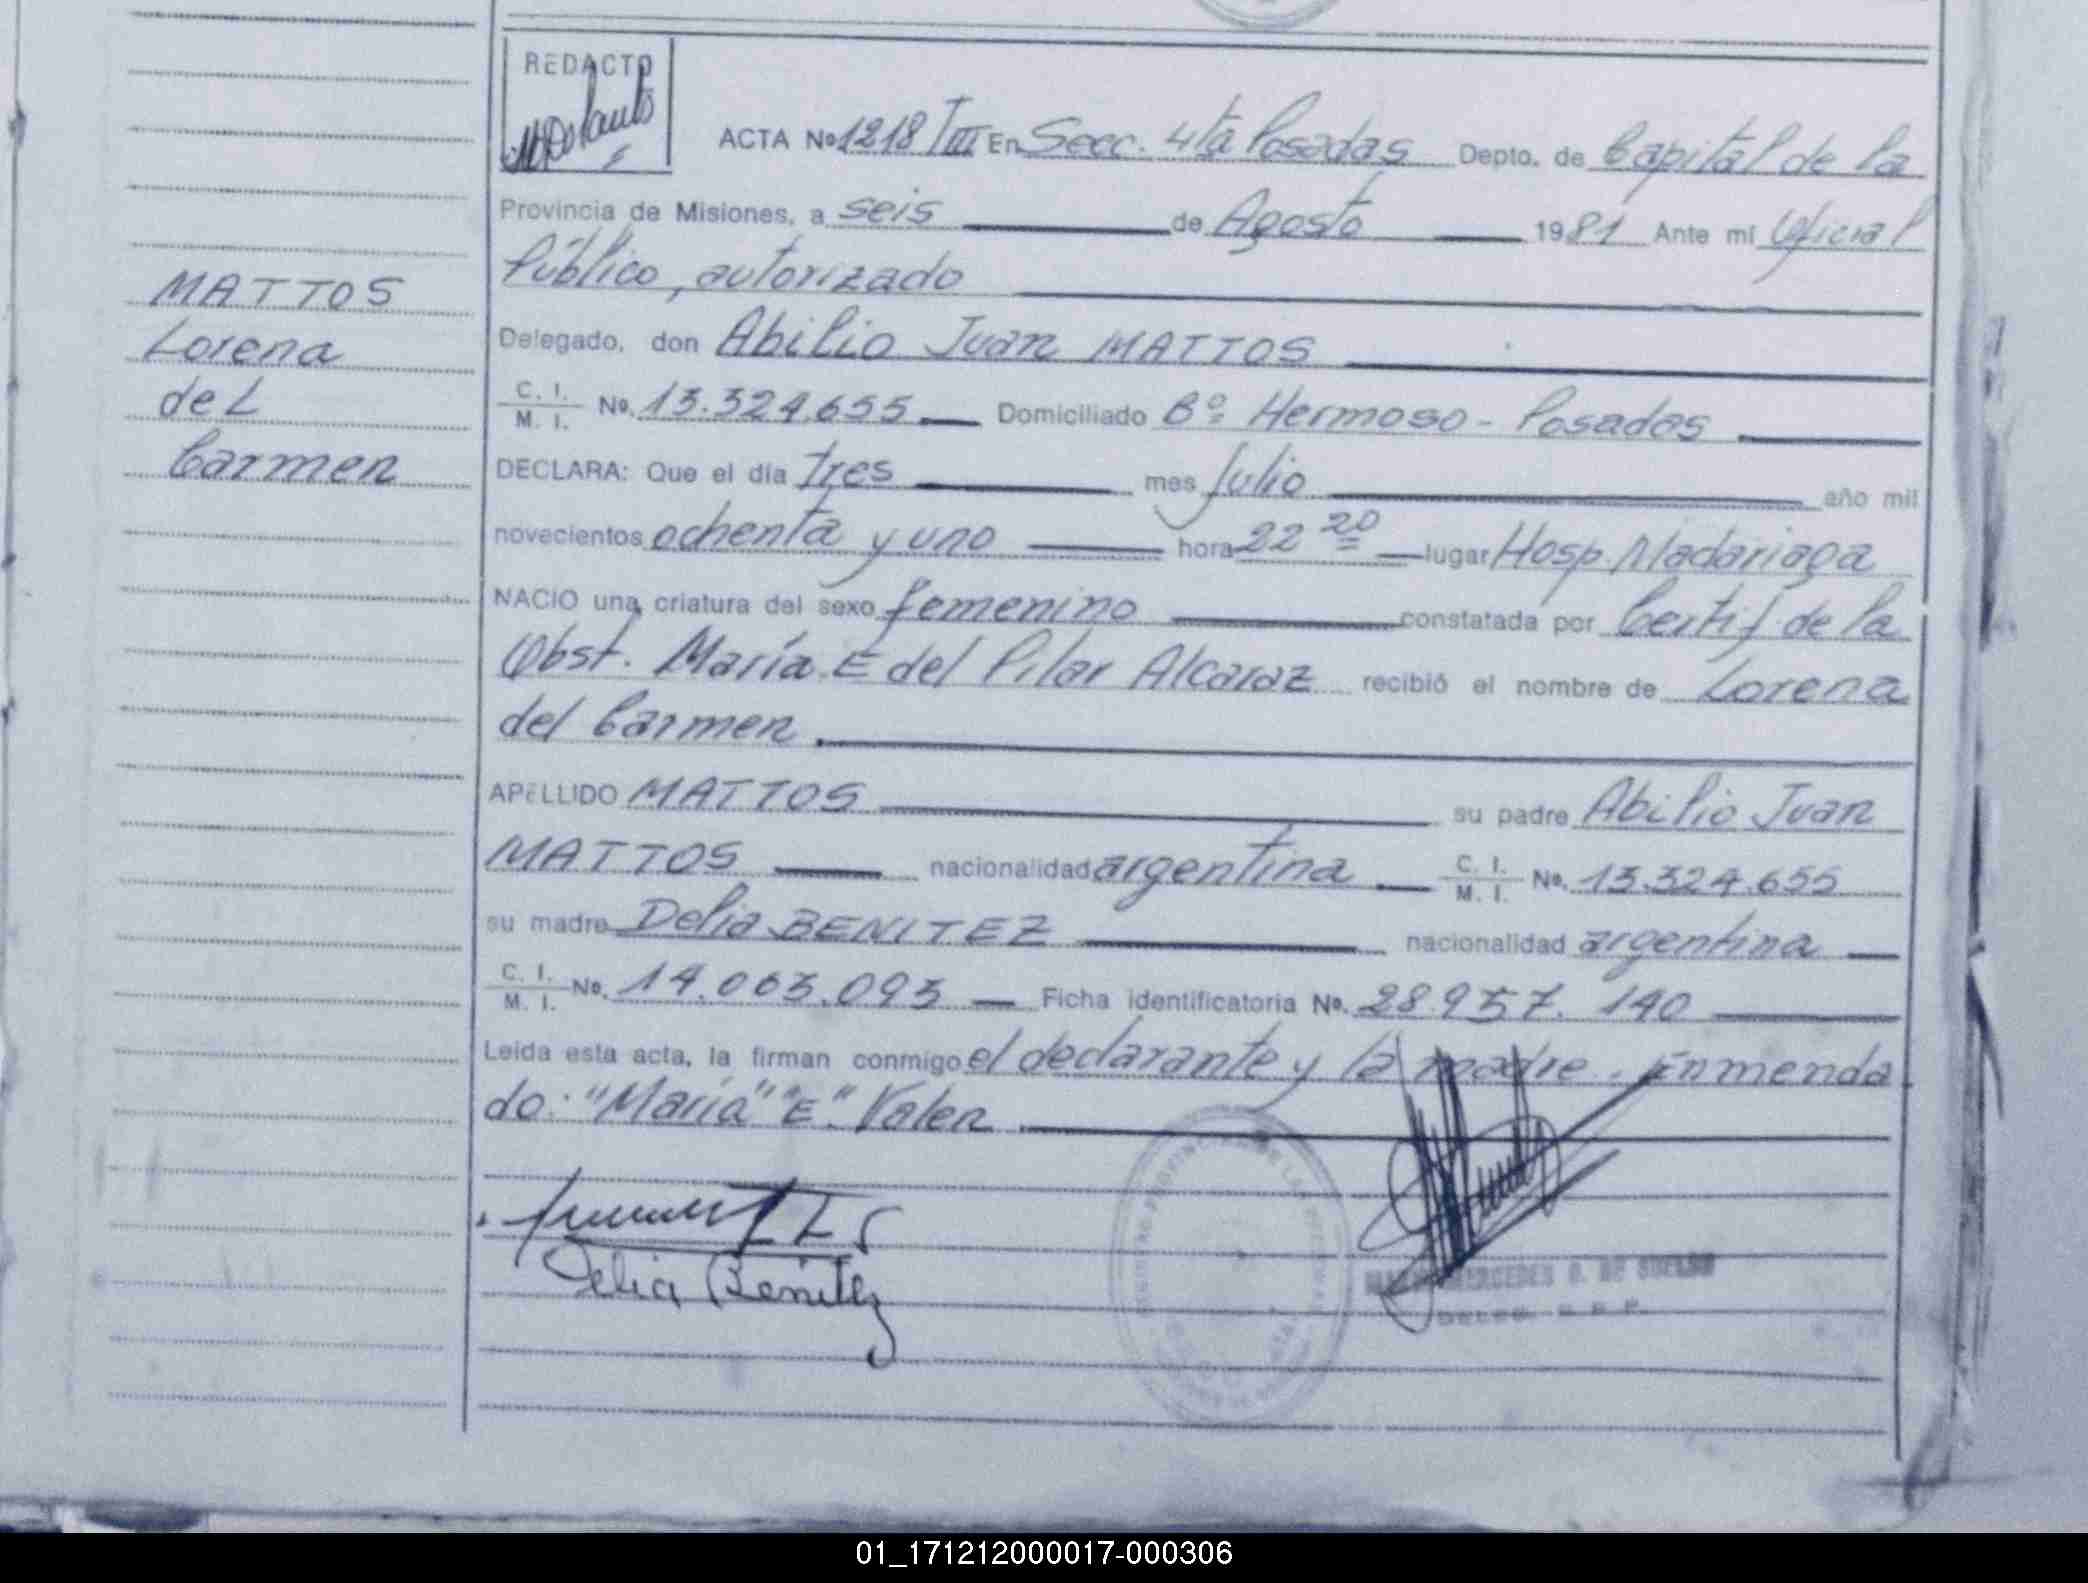 REDACTO
ACTA Nº 1218 TIII En Secc. 4ta Posadas Depto. de Capital de la
Provincia de Misiones, a seis de Agosto 1981 Ante mí Oficial
Público, autorizado
MATTOS
Lorena
del
Carmen
Delegado, don Abilio Juan MATTOS
C. I. M. I. Nº. 13.324.655 Domiciliado Bº Hermoso - Posadas
DECLARA: Que el día tres mes Julio año mil
novecientos ochenta y uno hora 22 20 lugar Hosp. Madariaga
NACIO una criatura del sexo femenino constatada por Certif. de la
Obst. María E del Pilar Alcaraz recibió el nombre de Lorena
del Carmen
APELLIDO MATTOS su padre Abilio Juan
MATTOS nacionalidad argentina C. I. M. I. Nº. 13.324.655
su madre Delia BENITEZ nacionalidad argentina
C. I. M. I. Nº. 14.063.093 Ficha identificatoria Nº. 28.957.140
Leída esta acta, la firman conmigo el declarante y la madre. Enmenda
do: "María" "E". Valen
Delia Benitez
MERCEDES
01_171212000017-000306